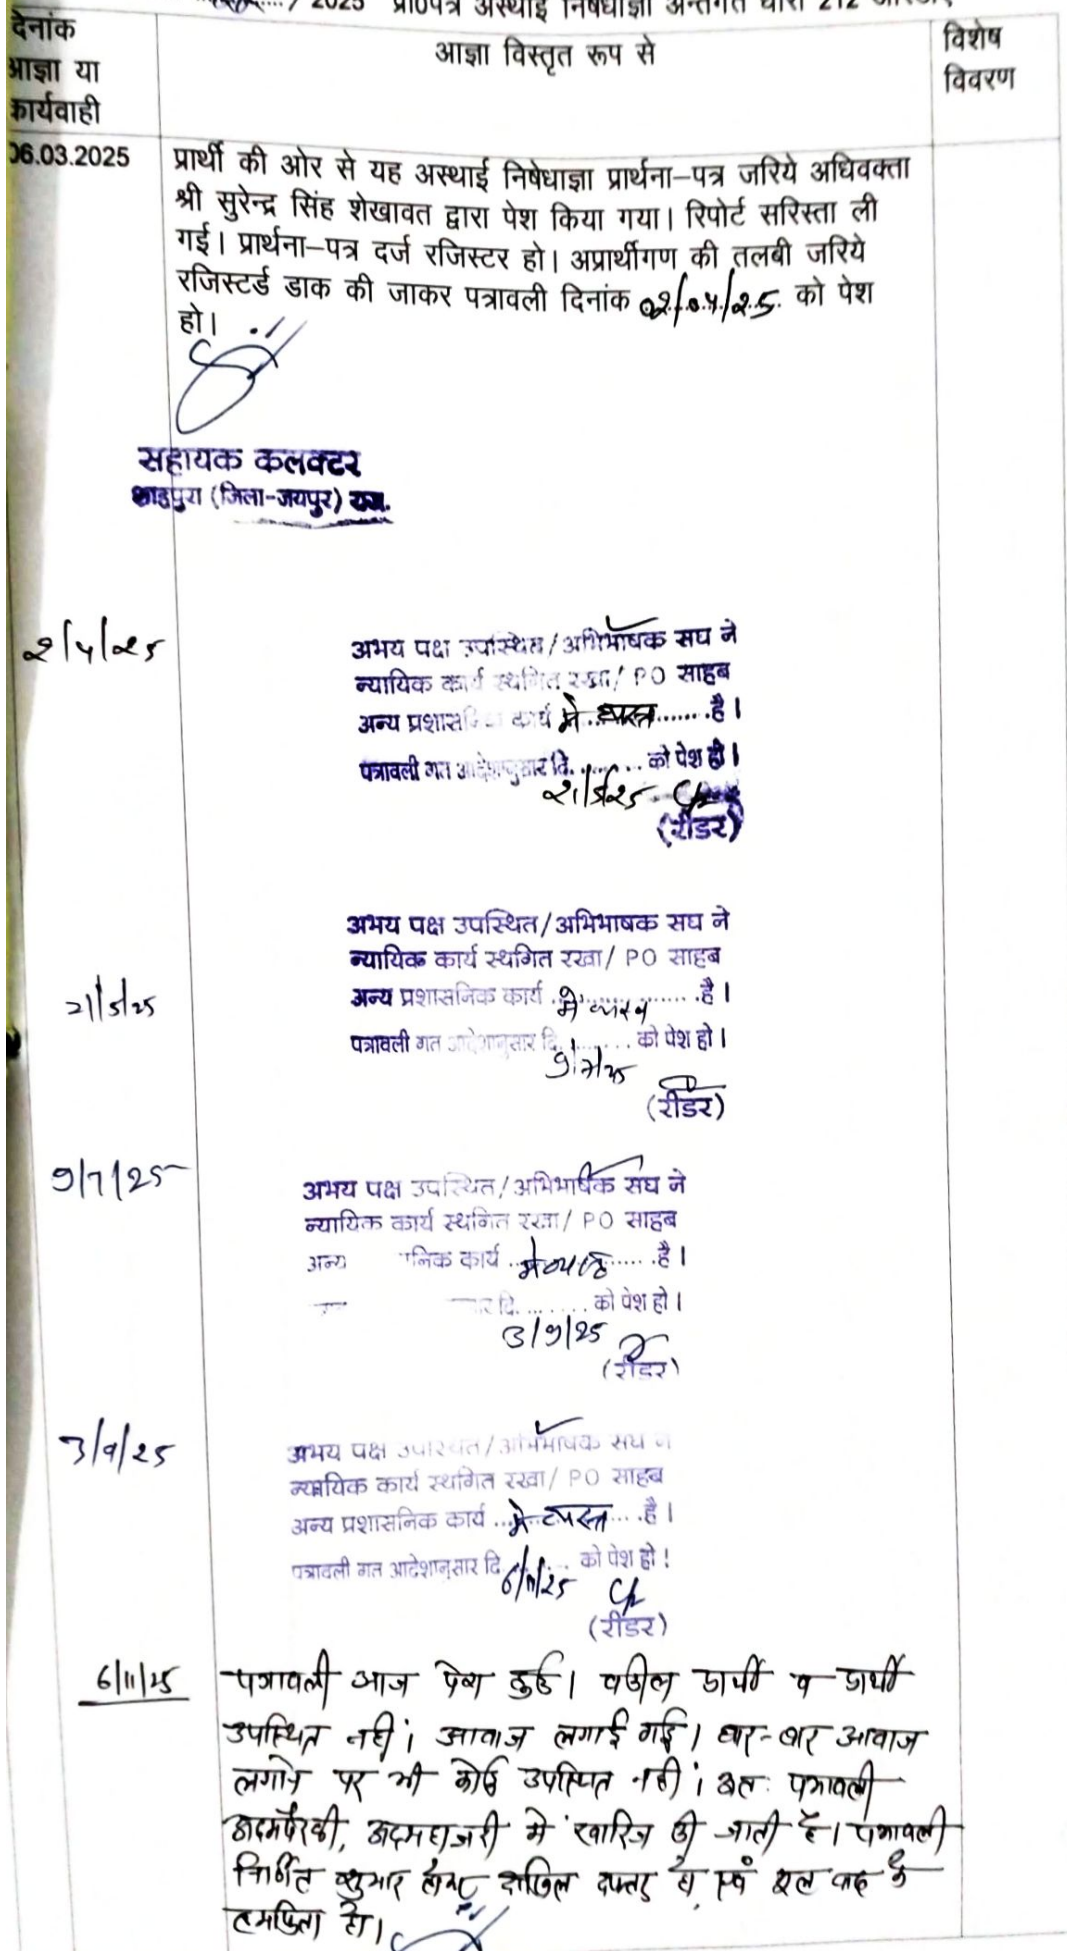 / 2025 प्रा0पत्र अस्थाई निषेधाज्ञा अन्तर्गत धारा 212
दिनांक
आज्ञा या
कार्यवाही
आज्ञा विस्तृत रूप से
विशेष
विवरण
06.03.2025
प्रार्थी की ओर से यह अस्थाई निषेधाज्ञा प्रार्थना–पत्र जरिये अधिवक्ता
श्री सुरेन्द्र सिंह शेखावत द्वारा पेश किया गया। रिपोर्ट सरिस्ता ली
गई। प्रार्थना–पत्र दर्ज रजिस्टर हो। अप्रार्थीगण की तलबी जरिये
रजिस्टर्ड डाक की जाकर पत्रावली दिनांक 02/04/25 को पेश
हो।
सहायक कलक्टर
शाहपुरा (जिला-जयपुर) राज.
2/4/25
अभय पक्ष उपस्थित/अभिभाषक सघ ने
न्यायिक कार्य स्थगित रखा/ PO साहब
अन्य प्रशासनिक कार्य में व्यस्त है।
पत्रावली गत आदेशानुसार दि. को पेश हो।
21/5/25
(रीडर)
अभय पक्ष उपस्थित/अभिभाषक सघ ने
न्यायिक कार्य स्थगित रखा/ PO साहब
21/5/25
अन्य प्रशासनिक कार्य में व्यस्त है।
पत्रावली गत आदेशानुसार दि. को पेश हो।
9/7/25
(रीडर)
9/7/25
अभय पक्ष उपस्थित/अभिभाषक सघ ने
न्यायिक कार्य स्थगित रखा/ PO साहब
अन्य निक कार्य में व्यस्त है।
दि. को पेश हो।
3/9/25
(रीडर)
3/9/25
अभय पक्ष उपस्थित/अभिभाषक सघ ने
न्यायिक कार्य स्थगित रखा/ PO साहब
अन्य प्रशासनिक कार्य में व्यस्त है।
पत्रावली गत आदेशानुसार दि 6/11/25 को पेश हो!
(रीडर)
6/11/25
पत्रावली आज पेश हुई। वकील प्रार्थी व प्रार्थी
उपस्थित नहीं। आवाज लगाई गई। बार-बार आवाज
लगाने पर भी कोई उपस्थित नहीं। अतः पत्रावली
अदमपैरवी, अदमहाजरी में खारिज की जाती है। पत्रावली
निर्णित शुमार होकर दाखिल दफ्तर हो एवं मूल वाद के
हो।